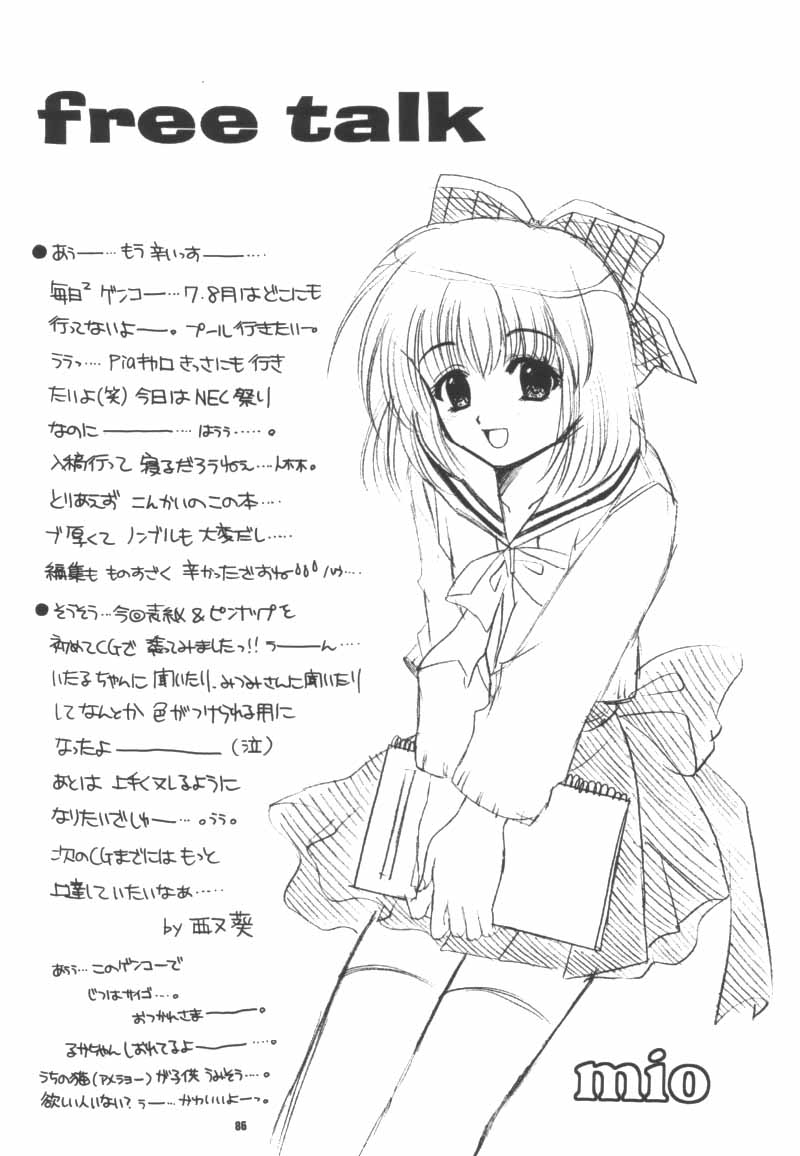 free talk
●あぅー…もう辛いっすー‥‥
毎日² ゲンコー…7.8月はどこにも
行ってないよー。プール行きたいー。
ううっ… Piaキャロ きっさにも 行き
たいよ(笑)今日は NEC祭り
なのに――… はぅぅ…。
入稿行って 寝るだろうねぇ…
とりあえず こんかいのこの本…
ブ厚くて ノンブルも 大変だし…
編集も ものすごく 辛かったですね
●そうそう…今回表紙&ピンナップを
初めてCGで 塗ってみましたっ!! うーん…
いたるちゃんに 聞いたり、みつみさんに聞いたり
してなんとか 色がつけられる用に
なったよ―――(泣)
あとは 上手くヌレるように
なりたいでしゅー…。ぅぅ。
次のCGまでには もっと
上達していたいなぁ…
by 亜又 葵
あぅぅ…このゲンコーで
じつはサイゴ…。
おつかれさまー。
るかちゃん しおれてるよー…。
うちの猫(アメショー)が子供 うみそう…。
欲しい人いない? ぅー…かわいいよーっ。
mio
86